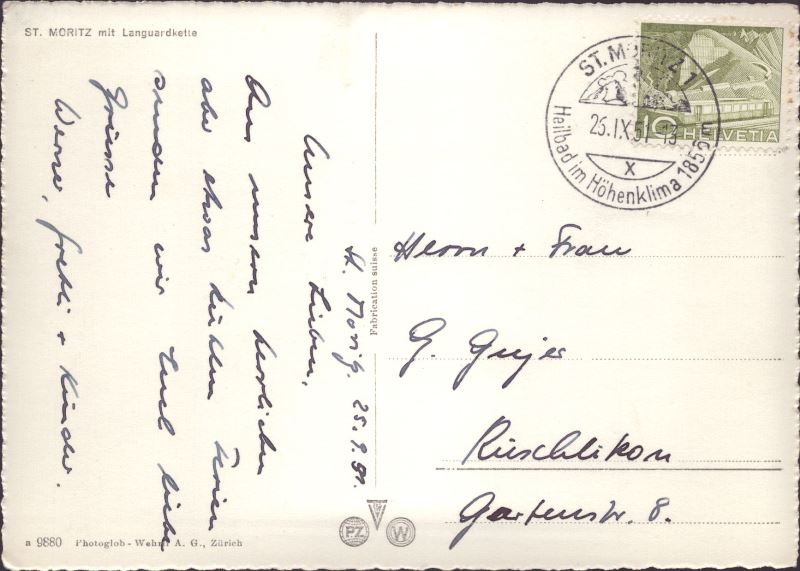 ST. MORITZ mit Languardkette
St. Moritz. 25.9.51.
Unsere Lieben,
Aus unsern herrlichen
aber etwas kühlen Ferien
senden wir Euch liebe
Grüsse
Werner, Gretli + Kinder.
a 9880 Photoglob - Wehrli A. G., Zürich
Fabrication suisse
PZ
W
ST. MORITZ 1
25.IX.51-13
X
Heilbad im Höhenklima 1856 m
10 HELVETIA
Herrn + Frau
G.
Rüschlikon
Gartenstr. 8.